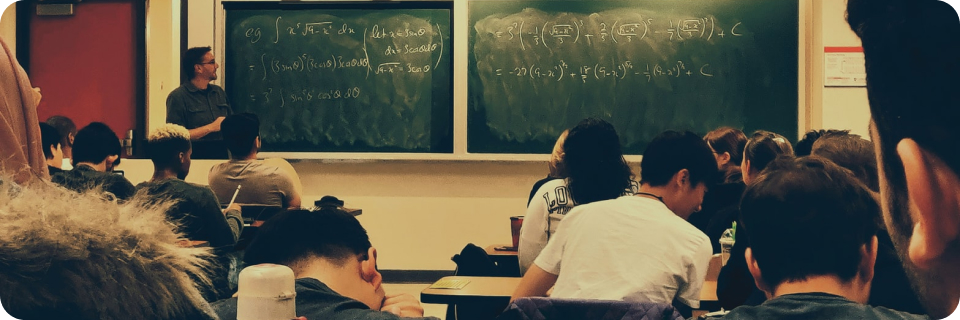 eg ∫ x⁵ √(9-x²) dx
let x = 3 sinθ
dx = 3 cosθ dθ
√(9-x²) = 3 cosθ
= ∫ (3 sinθ)⁵ (3 cosθ) 3 cosθ dθ
= 3⁷ ∫ sin⁵θ cos²θ dθ
= 3⁷ ( -1/3 (√(9-x²)/3)³ + 2/5 (√(9-x²)/3)⁵ - 1/7 (√(9-x²)/3)⁷ ) + C
= -27 (9-x²)^(3/2) + 18/5 (9-x²)^(5/2) - 1/7 (9-x²)^(7/2) + C